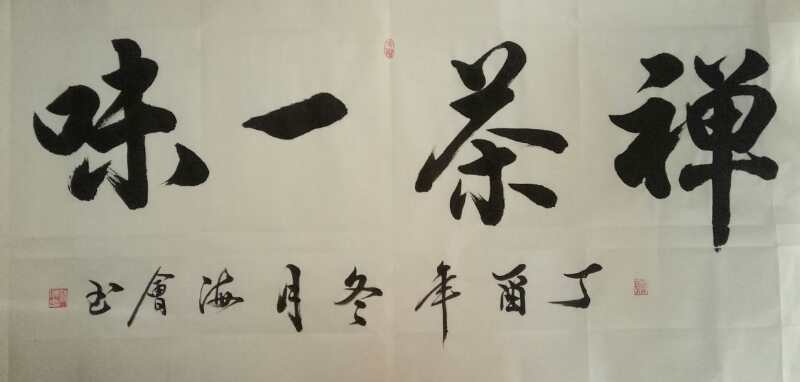 禅茶一味
丁酉年冬月海會书